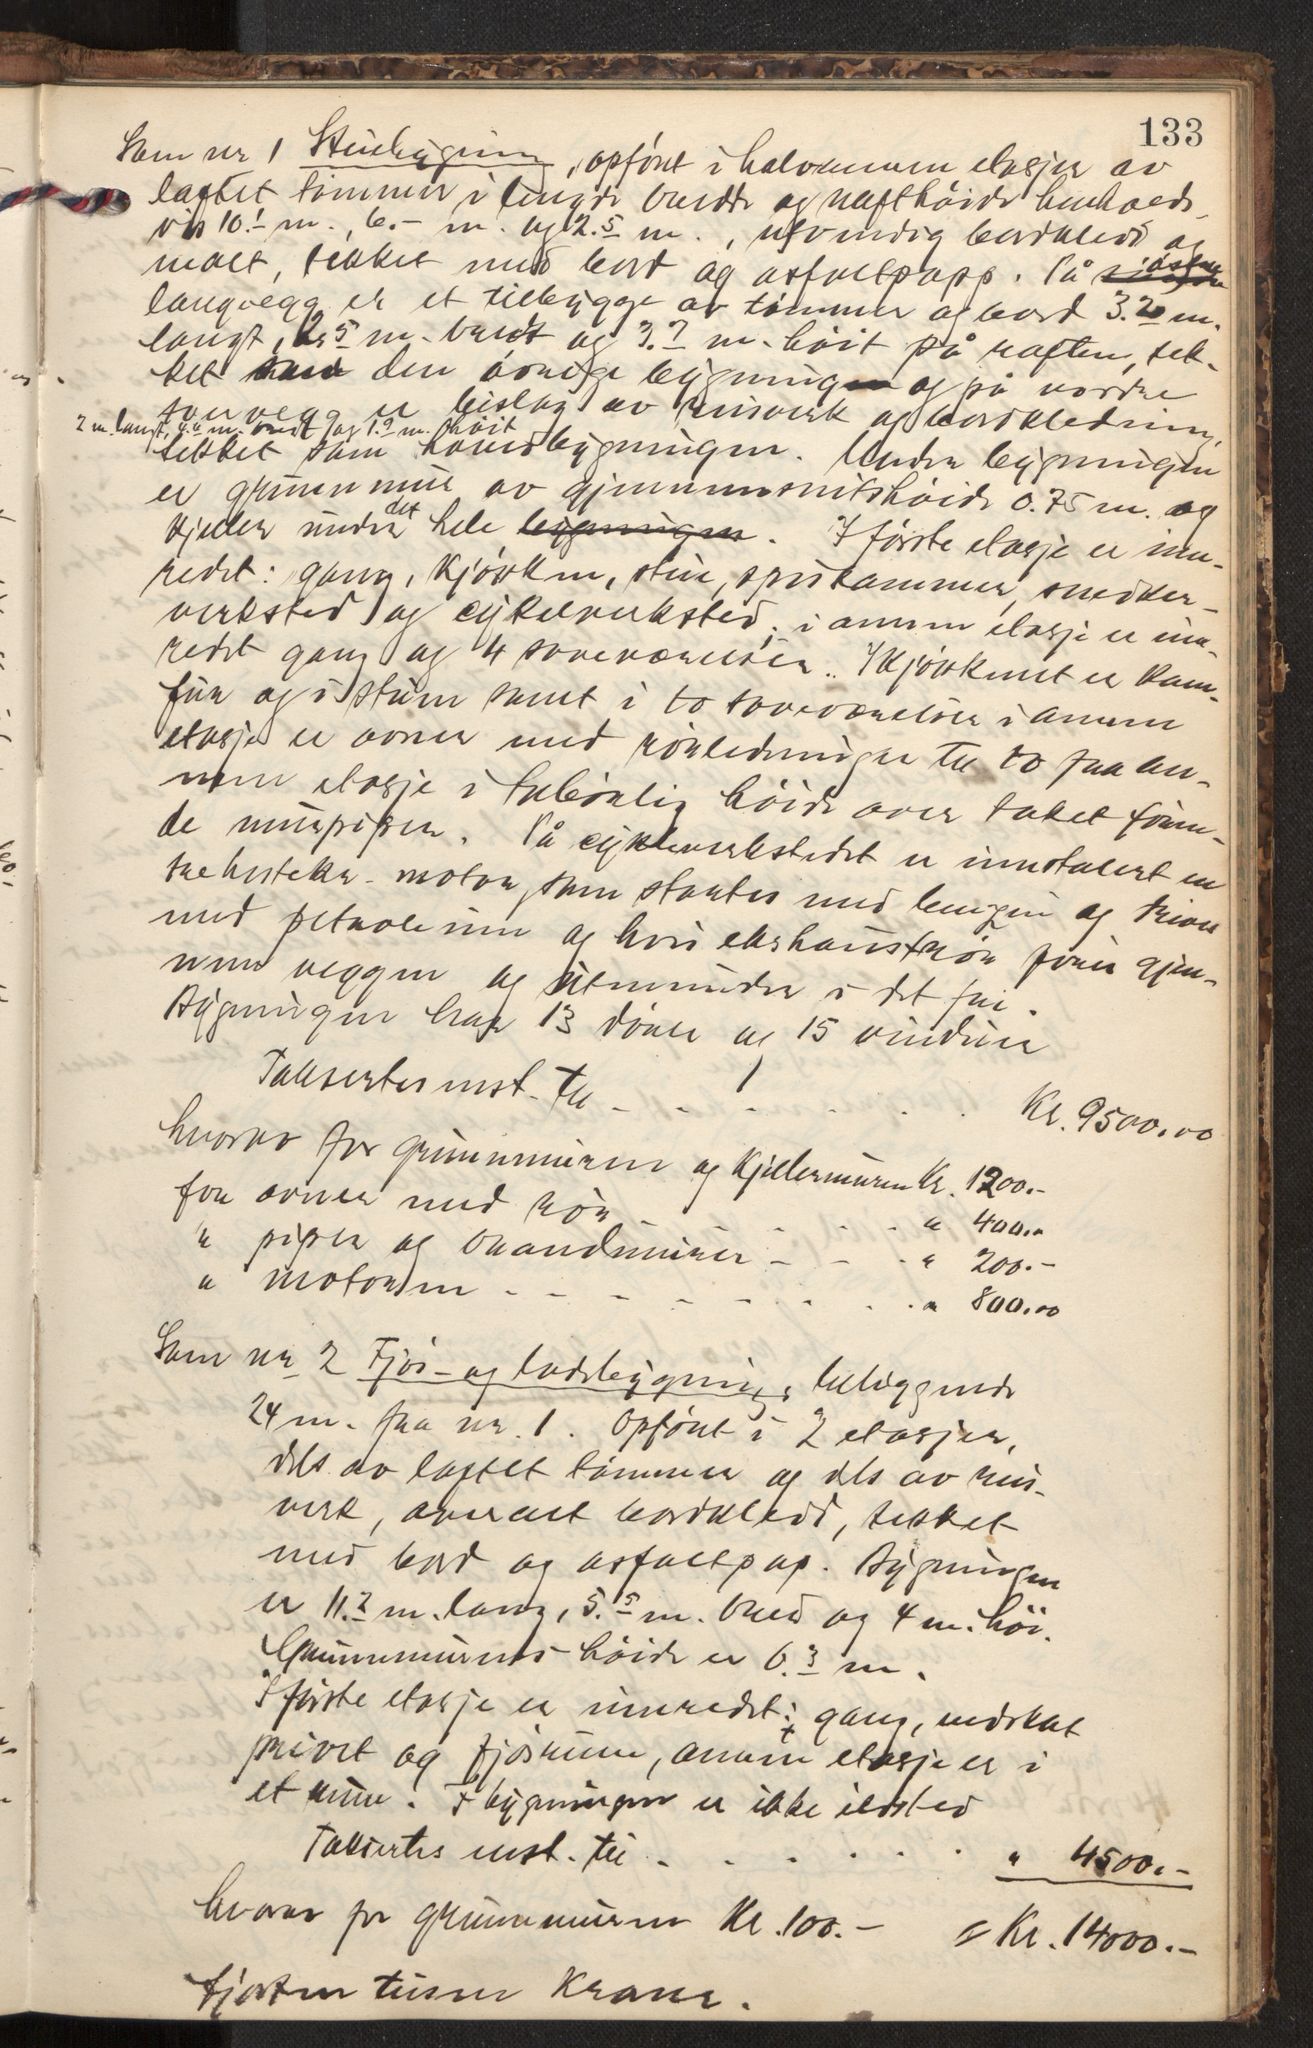 133
Som nr 1 Stuebygning, opført i halvannen etasjer av
laftet tømmer i lengde bredde og rafthøide henholds-
vis 10.1 m., 6.- m. og 2.5 m., utvendig bordkledd og
malt, tekket med bord og asfaltpapp. På østre
langvegg er et tilbygge av tømmer og bord 3.20 m.
langt, 2.5 m. bredt og 3.2 m. høit på raften, tek-
ket som den øvrige bygningen og på nordre
tvervegg er bislag av reisverk og bordkledning,
2 m. langt, m. bredt og 1.9 m. høit
tekket som hovedbygningen. Under bygningen
er grunnmur av gjennemsnitshøide 0.75 m. og
kjeller under det hele bygningen. I første etasje er inn-
redet: gang, kjøkken, stue, spiskammer, snedker-
verksted og cykkelverksted; i annen etasje er inn-
redet gang og 4 soveværelser. I kjøkkenet er kom-
fur og i stuen samt i to soveværelser i annen
etasje er ovner med rørledninger til to fra an-
nen etasje i tilbørlig høide over taket føren-
de murpiper. På cykleverkstedet er innstalert en
trehestekr. motor, som startes med bengin og drives
med petroleum og hvis ekshaustrør fører gjen-
nem veggen og utmunder i det fri.
Bygningen har 13 dører og 15 vinduer
Takseres nst. til - - - - - - Kr. 9500.00
hvorav for grunnmuren og kjellermuren Kr. 1200.-
for ovner med rør - - - - - " 400.-
" piper og brandmurer - - - " 200.-
" motoren - - - - - - - " 800.00
Som nr 2 Fjøs- og ladebygning, beliggende
24 m. fra nr. 1. Opført i 2 etasjer,
dels av laftet tømmer og dels av reis-
verk, overalt bordkledd, tekket
med bord og asfaltpap. Bygningen
er 11.2 m. lang, 5.5 m. bred og 4 m. høi.
Grunnmurens høide er 0.3 m.
I første etasje er innredet: gang, vedskåt
privet og fjøsrum, annen etasje er i
et rum. I bygningen er ikke ildsted
Takseres nst. til - - - - - " 4500.-
hvorav for grunnmuren Kr. 100.- Kr. 14000.-
Fjorten tusen Kroner.